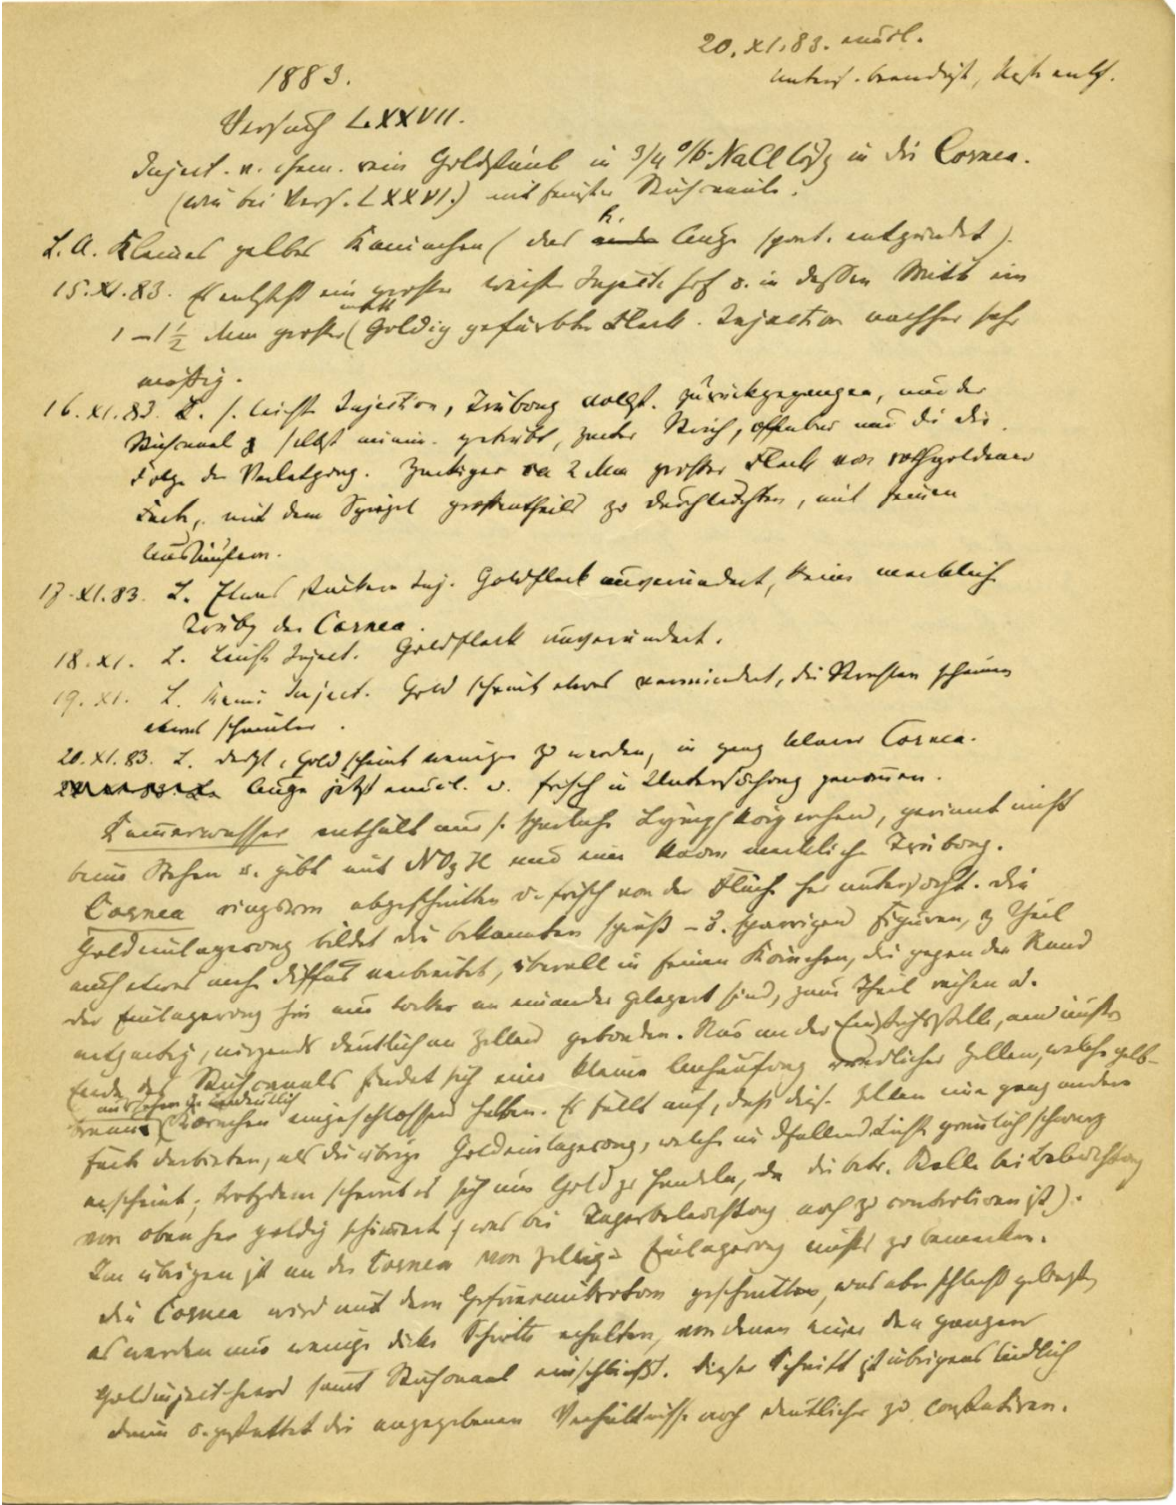 20. XI. 83. enucl.
Unters. beendigt,
1883.
Versuch LXXVII.
Inject. v. chem. rein Goldstaub in 3/4 % NaCl Lösg in die Cornea.
(wie bei Vers. LXXVI.) mit feinster Stichcanüle.
L. A. Kleines gelbes Kaninchen (das R. Auge spont. entzündet).
15. XI. 83. Es entsteht ein grosser weisser Inject. hof u. in dessen Mitte ein
1 – 1 1/2 Mm grosser matt goldig gefärbter Fleck. Injection nachher sehr
mässig.
16. XI. 83. L. s. leichte Injection, Trübung vollst. zurückgegangen, nur der
Stichcanal selbst minim. getrübt, zarter Strich, offenbar nur die
Folge der Verletzung. Zackiger ca 2 Mm grosser Fleck von rothgoldener
Farbe, mit dem Spiegel grossentheils zu durchleuchten, mit feinen
Ausläufern.
17. XI. 83. L. Etwas stärkere Inj. Goldfleck unverändert, keine merkliche
Trübg der Cornea.
18. XI. L. Leichte Inject. Goldfleck unverändert.
19. XI. L. Keine Inject. Gold scheint etwas vermindert, die Strahlen scheinen
etwas schmäler.
20. XI. 83. L. desgl., Gold scheint weniger zu werden, in ganz klarer Cornea.
Auge jetzt enucl. u. frisch in Untersuchung genommen.
Kammerwasser enthält nur s. spärliche Lymphkörperchen, gerinnt nicht
beim Stehen u. gibt mit NO3H nur eine kaum merkliche Trübung.
Cornea ringsum abgeschnitten u. frisch von der Fläche her untersucht. Die
Goldeinlagerung bildet die bekannten spiess- u. sparrigen Figuren, z Theil
auch etwas mehr diffus verbreitet, überall in feinen Körnchen, die gegen den Rand
der Einlagerung hin nur locker an einander gelagert sind, zum Theil reihen od.
netzartig, nirgends deutlich an Zellen gebunden. Nur an der Einstichsstelle, am äussern
Ende des Stichcanals findet sich eine kleine Anhäufung rundlicher Zellen, welche gelb-
braune Körnchen eingeschlossen halten. Es fällt auf, dass diese Zellen eine ganz andere
Farbe darbieten, als die übrige Goldeinlagerung, welche im dfallend Licht grünlich schwarz
erscheint; trotzdem scheint es sich um Gold zu handeln, da die betr. Stelle bei Beleuchtung
von oben her goldig schimmert (was bei Tagesbeleuchtung noch zu controliren ist).
Im übrigen ist an der Cornea von zelliger Einlagerung nichts zu bemerken.
Die Cornea wird mit dem Gefriermikrotom geschnitten, was aber schlecht gelingt,
es werden nur wenige dicke Schnitte erhalten, von denen einer den ganzen
Goldinject.heerd sammt Stichcanal einschliesst. Dieser Schnitt ist übrigens leidlich
dünn u. gestattet die angegebenen Verhältnisse noch deutlicher zu constatiren.